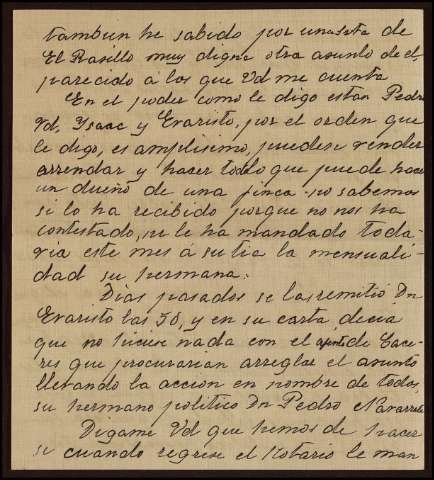 tambien he sabido por una carta de
El Rasillo muy digna otra asunto de el,
parecido á los que Vd me cuenta
En el poder como le digo estan Pedro
Vd, Ysaac y Evaristo, por el orden que
le digo, es amplisimo, puedese vender
arrendar y hacer todo lo que puede hacer
un dueño de una finca no sabemos
si lo ha recibido porque no nos ha
contestado, ni le ha mandado toda-
via este mes á su tia la mensuali-
dad su hermana.
Dias pasados se las remitió Dn
Evaristo las 50, y en su carta decia
que no hiciese nada con el de Cace-
res que procurarian arreglar el asunto
llevando la accion en nombre de todos,
su hermano politico Dn Pedro Navarrete
Digame Vd que hemos de hacer
si cuando regrese el Notario le man